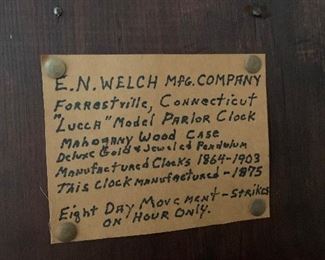 E.N. WELCH MFG. COMPANY
FORRESTVILLE, CONNECTICUT
"LUCCA" MODEL PARLOR CLOCK
MAHOGANY WOOD CASE
DELUXE "GOLD & JEWELED PENDULUM
MANUFACTURED CLOCKS 1864-1903
THIS CLOCK MANUFACTURED - 1875
EIGHT DAY MOVEMENT - STRIKES
ON HOUR ONLY.